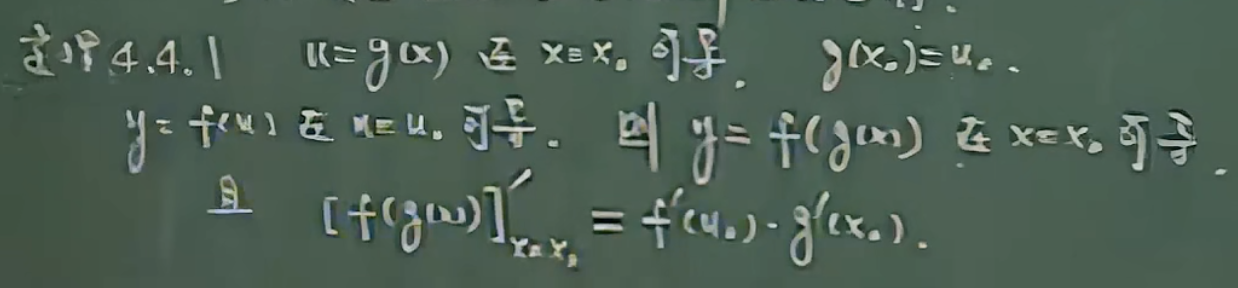 定理4.4.1 u=g(x) 在 x=x₀ 可导. g(x₀)=u₀.
y=f(u) 在 u=u₀ 可导. 则 y=f(g(x)) 在 x=x₀ 可导.
且 [f(g(x))]'ₓ₌ₓ₀ = f'(u₀)·g'(x₀).